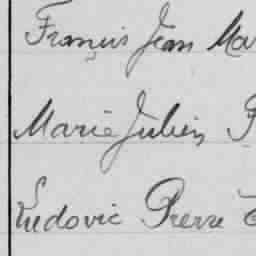 Français Jean Mar
Marie Julien
Ludovic Pierre